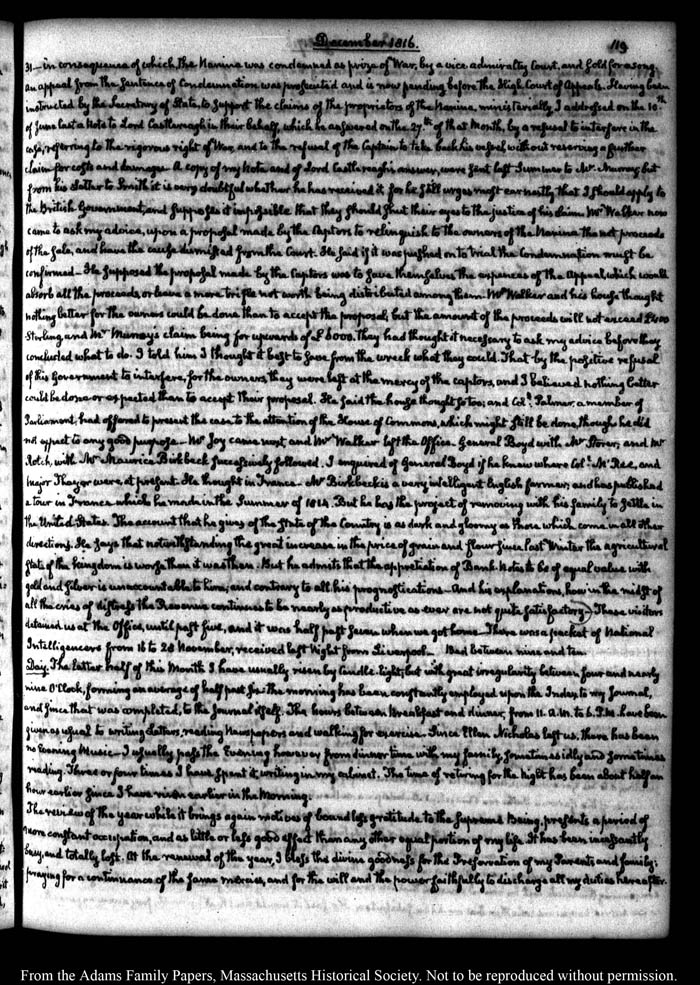 December 1816.
119
31.— in consequence of which the Nanina was condemned as prize of War, by a vice admiralty Court, and sold for a song.
an appeal from the Sentence of Condemnation was prosecuted and is now pending before the High Court of Appeals. Having been
instructed by the Secretary of State, to support the claims of the proprietors of the Nanina, ministerially, I addressed on the 10th
of June last a Note to Lord Castlereagh in their behalf, which he answered on the 27th of that Month, by a refusal to interfere in the
case, referring to the rigorous right of War, and to the refusal of the Captain to take back his vessel without reserving a further
claim for costs and damages. A copy of my Note and of Lord Castlereagh's answer, were sent last Summer to Mr Murray, but
from his Letter to Smith it is very doubtful whether he has received it for he still urges most earnestly that I should apply to
the British Government, and supposes it impossible that they should shut their eyes to the justice of his claim. Mr Walker now
came to ask my advice, upon a proposal made by the Captors to relinquish to the owners of the Nanina the net proceeds
of the Sale, and have the cause dismissed from the Court. He said if it was pushed on to trial the condemnation must be
confirmed— He supposed the proposal made by the Captors was to save themselves the expences of the Appeal, which would
absorb all the proceeds, or leave a mere trifle not worth being distributed among them. Mr Walker and his house thought
nothing better for the owners could be done than to accept the proposal; but the amount of the proceeds will not exceed £400
Sterling, and Mr Murray's claim being for upwards of £6000. they had thought it necessary to ask my advice before they
concluded what to do. I told him I thought it best to save from the wreck what they could. That by the positive refusal
of this Government to interfere, for the owners, they were left at the mercy of the captors, and I believed nothing better
could be done or expected than to accept their proposal. He said the house thought so too; and Coll. Palmer, a member of
Parliament, had offered to present the case to the attention of the House of Commons, which might still be done, though he did
not expect to any good purpose.— Mr Joy came next, and Mr Walker left the Office. General Boyd with Mr Storer, and Mr
Rotch, with Mr Maurice Birkbeck successively followed. I enquired of General Boyd if he knew where Coll. McRee, and
Major Thayer were at present. He thought in France.— Mr Birkbeck is a very intelligent English farmer; and has published
a tour in France which he made in the Summer of 1814. But he has the project of removing with his family to settle in
the United States. The account that he gives of the State of the Country is as dark and gloomy as those which come in all other
directions. He says that notwithstanding the great increase in the price of grain and flour since last Winter the agricultural
state of the kingdom is worse than it was then. But he admits that the appretiation of Bank Notes to be of equal value with
gold and silver is unaccountable to him, and contrary to all his prognostications— And his explanations, how in the midst of
all the cries of distress the Revenue continues to be nearly as productive as ever are not quite satisfactory— These visitors
detained us at the Office, until past five, and it was half past seven when we got home— There was a packet of National
Intelligencers from 16 to 28 November, received last Night from Liverpool.— Bed between nine and ten.
Day. The latter half of this Month I have usually risen by candle-light, but with great irregularity between four and nearly
nine O'Clock, forming an average of half past six. The morning has been constantly employed upon the Index to my Journal,
and since that was completed, to the Journal itself. The hours between Breakfast and dinner, from 11. A.M. to 6. P.M. have been
given as usual to writing Letters, reading Newspapers and walking for exercise. Since Ellen Nicholas left us, there has been
no Evening Music— I usually pass the Evening however from dinner time with my family, sometimes idly and sometimes
reading. Three or four times I have spent it, writing in my cabinet. The time of retiring for the Night has been about half an
hour earlier since I have risen earlier in the Morning.
The review of the year while it brings again motives of boundless gratitude to the Supreme Being, presents a period of
more constant occupation, and as little or less good effect than any other equal portion of my life. It has been incessantly
busy, and totally lost. At the renewal of the year, I bless the divine goodness for the Preservation of my Parents and family;
praying for a continuance of the same mercies, and for the will and the power faithfully to discharge all my duties hereafter.
From the Adams Family Papers, Massachusetts Historical Society. Not to be reproduced without permission.